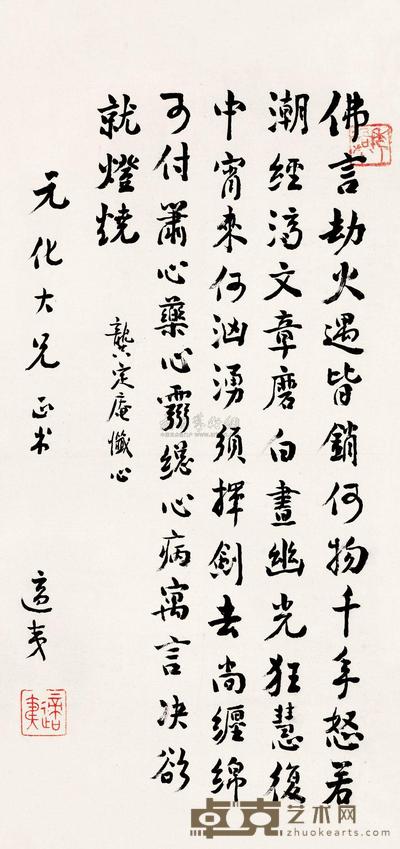 佛言劫火遇皆銷何物千年怒若
潮經濟文章磨白晝幽光狂慧復
中宵來何洶湧須揮劍去尚纏綿
可付簫心藥心靈總心病寓言決欲
就燈燒
龔定庵懺心
元化大兄正
適夷
適夷
卓克艺术网
zhuokearts.com